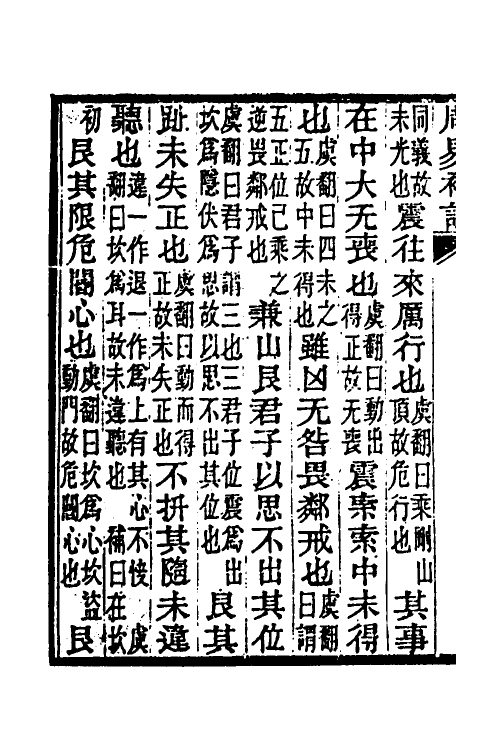 同義故
未光也
震往來厲行也
虞翻曰乘剛山
頂故危行也
其事
在中大无喪也
虞翻曰動出
得正故无喪
震索索中未得
也
虞翻曰四未之
五故中未得也
雖凶无咎畏鄰戒也
虞翻
曰謂
五正位己乘之
逆畏鄰戒也
兼山艮君子以思不出其位
虞翻曰君子謂三也三君子位震爲出
坎爲隱伏爲思故以思不出其位也
艮其
趾未失正也
虞翻曰動而得
正故未失正也
不拼其隨未違
聽也
違一作退一作爲上有其心不快 虞
翻曰坎爲耳故未違聽也 補曰在坎
初
艮其限危閽心也
虞翻曰坎爲心坎盜
動門故危閽心也
艮